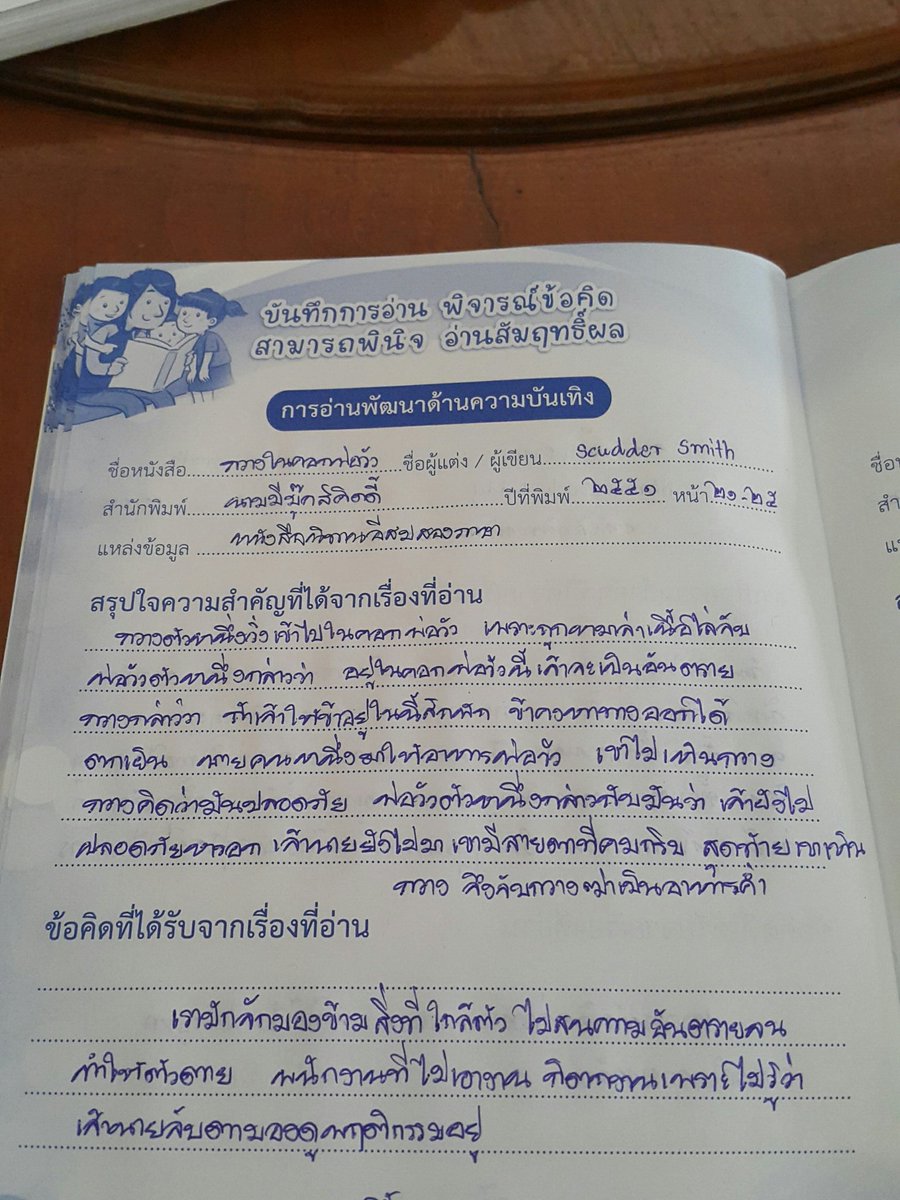 บันทึกการอ่าน พิจารณ์ข้อคิด
สามารถพินิจ อ่านสัมฤทธิ์ผล
การอ่านพัฒนาด้านความบันเทิง
ชื่อหนังสือ กวางในคอกพ่อวัว ชื่อผู้แต่ง / ผู้เขียน Scudder Smith
สำนักพิมพ์ นานมีบุ๊คส์คิดดี้ ปีที่พิมพ์ ๒๕๕๑ หน้า ๒๑-๒๕
แหล่งข้อมูล หนังสือนิทานอีสปสองภาษา
สรุปใจความสำคัญที่ได้จากเรื่องที่อ่าน
กวางตัวหนึ่งวิ่งเข้าไปในคอกพ่อวัว เพราะถูกหมาล่าเนื้อไล่จับ
พ่อวัวตัวหนึ่งกล่าวว่า อยู่ในคอกพ่อวัวนี้เจ้าจะเป็นอันตราย
กวางกล่าวว่า ถ้าเจ้าให้ข้าอยู่ในนี้สักพัก ข้าคงหาทางออกได้
ตกเย็น นายคนหนึ่งมาให้อาหารพ่อวัว เขาไม่เห็นกวาง
กวางคิดว่ามันปลอดภัย พ่อวัวตัวหนึ่งกล่าวกับมันว่า เจ้ายังไม่
ปลอดภัยหรอก เจ้านายยังไม่มา เขามีสายตาที่คมกริบ สุดท้ายเขาเห็น
กวาง จึงจับกวางฆ่าเป็นอาหารค่ำ
ข้อคิดที่ได้รับจากเรื่องที่อ่าน
เรามักลักมองข้ามสิ่งที่ใกล้ตัว ไม่สนความอันตรายจน
ทำให้ตัวตาย พนักงานที่ไม่เอางาน คิดตกงานเพราะไม่รู้ว่า
เจ้านายจับตามองดูพฤติกรรมอยู่